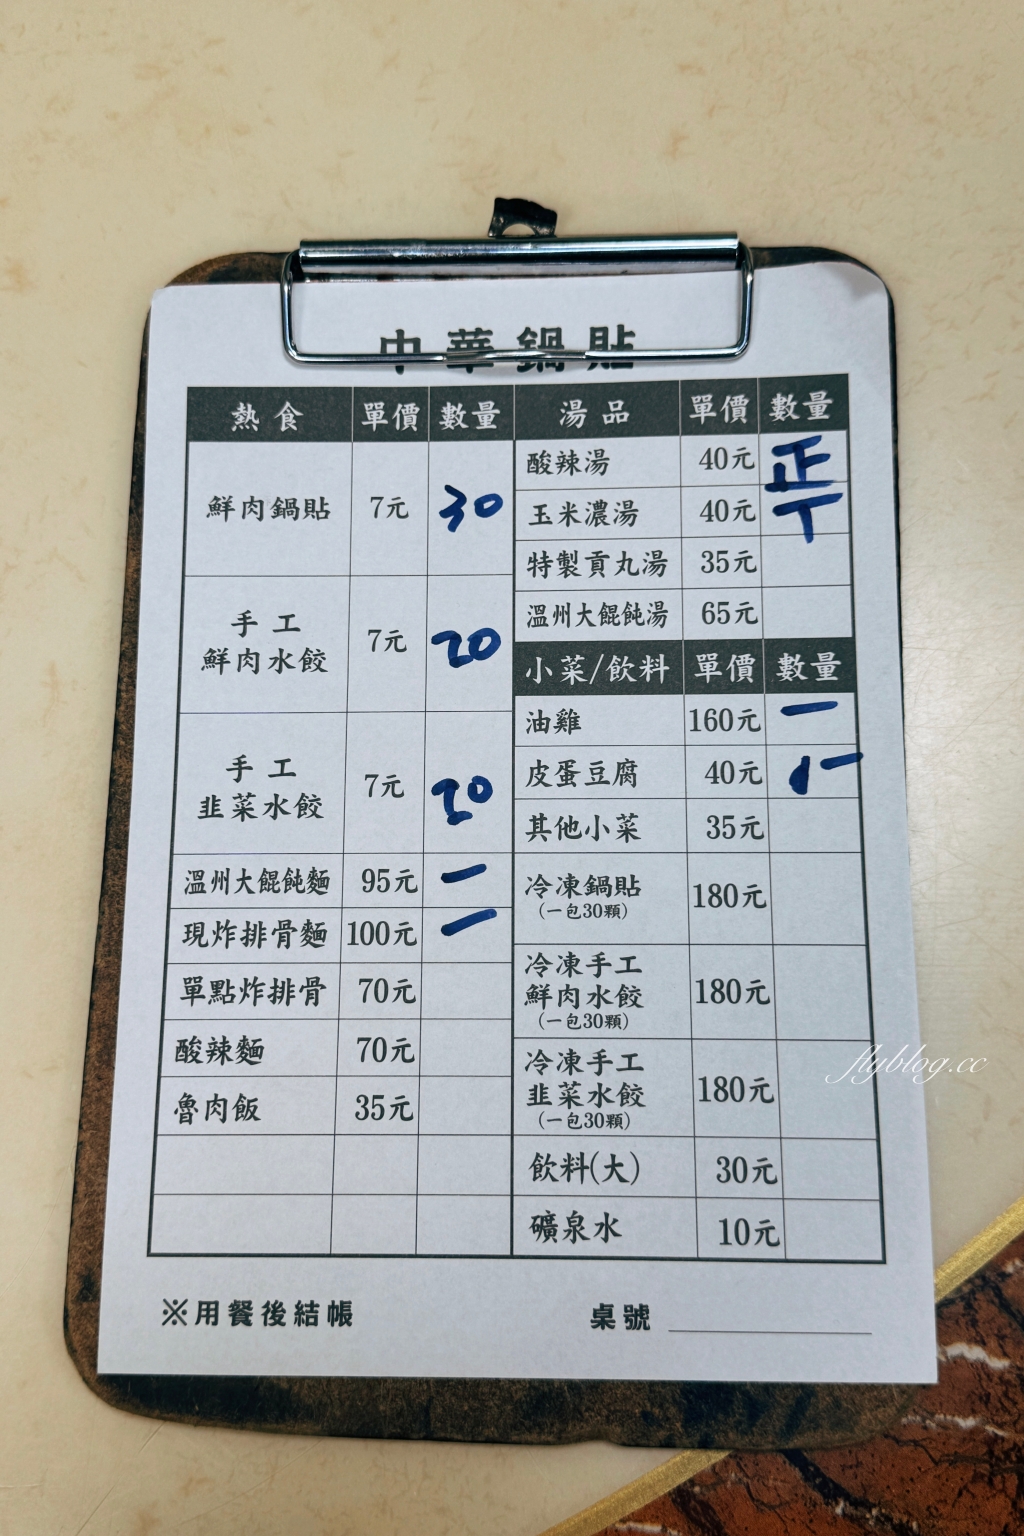 中華鍋貼
熱食 單價 數量
鮮肉鍋貼 7元 30
手工
鮮肉水餃 7元 20
手工
韭菜水餃 7元 20
溫州大餛飩麵 95元 一
現炸排骨麵 100元 一
單點炸排骨 70元
酸辣麵 70元
魯肉飯 35元
湯品 單價 數量
酸辣湯 40元 正
玉米濃湯 40元 丅
特製貢丸湯 35元
溫州大餛飩湯 65元
小菜/飲料 單價 數量
油雞 160元 一
皮蛋豆腐 40元
其他小菜 35元
冷凍鍋貼 180元
(一包30顆)
冷凍手工
鮮肉水餃 180元
(一包30顆)
冷凍手工
韭菜水餃 180元
(一包30顆)
飲料(大) 30元
礦泉水 10元
※用餐後結帳 桌號
flyblog.cc